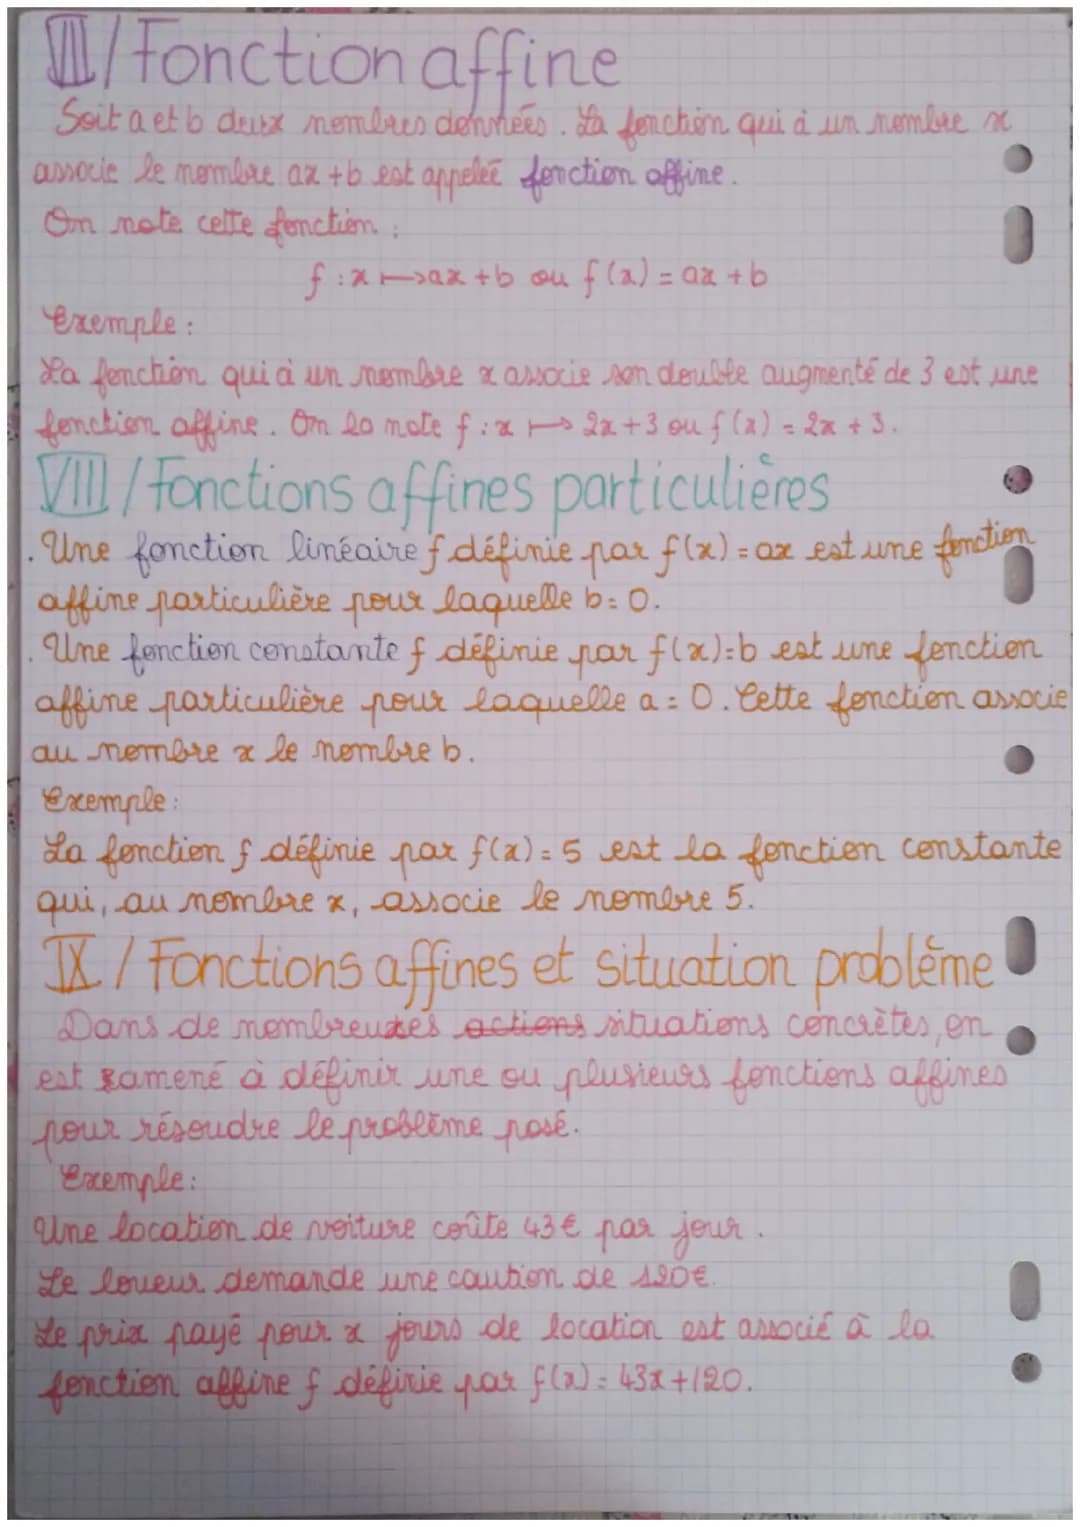 VII/Fonction affine
Soit a et b deux nombres données. La fonction qui à un nombre x
associe le nombre ax+b est appeleé fonction affine.
On note cette fonction :
f : x ↦ ax + b ou f(x) = ax + b
Exemple :
La fonction qui à un nombre x associe son double augmenté de 3 est une
fonction affine. On la note f : x ↦ 2x+3 ou f(x) = 2x + 3.
VIII/Fonctions affines particulières
. Une fonction linéaire f définie par f(x) = ax est une fonction
affine particulière pour laquelle b = 0.
. Une fonction constante f définie par f(x) = b est une fonction
affine particulière pour laquelle a = 0. Cette fonction associe
au nombre x le nombre b.
Exemple :
La fonction f définie par f(x) = 5 est la fonction constante
qui, au nombre x, associe le nombre 5.
IX/Fonctions affines et situation problème
Dans de nombreuses actions situations concrètes, on
est amené à définir une ou plusieurs fonctions affines
pour résoudre le problème posé.
Exemple :
Une location de voiture coûte 43€ par jour.
Le loueur demande une caution de 120€.
Le prix payé pour x jours de location est associé à la
fonction affine f définie par f(x) = 43x+120.